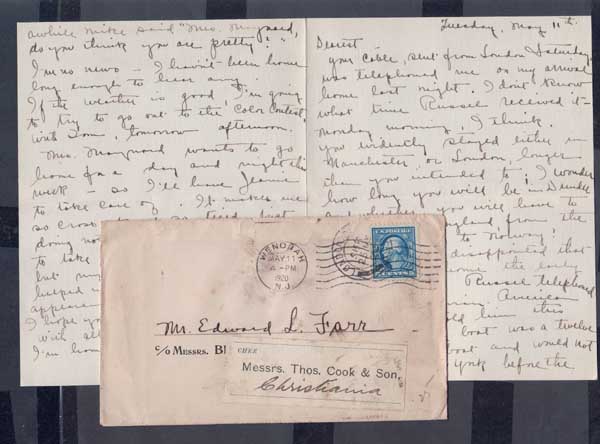 awhile Mike said "Mrs. Maynard,
do you think you are pretty?"
I'm no news – I haven't been home
long enough to hear any.
If the weather is good I'm going
to try to go out to the Color Contest,
with Tom, tomorrow afternoon.
Mrs. Maynard wants to go
home for a day and night this
week – so I'll have Jeanie
to take care of. It makes me
so cross to be so tired just
doing no
to take
but my
helped
appear
I hope yo
with all
I'm hom
Tuesday, May 11th.
Dearest
your cable, sent from London Saturday,
was telephoned me on my arrival
home last night. I don't know
what time Russel received it –
Monday morning, I think.
You evidently stayed either in
Manchester or London, longer
than you intended to; I wonder
how long you will be in Dundee
and whether you will have to
England from the
to Norway?
disappointed that
come the early
Russel telephoned
American
told him this
boat was a twelve
boat and would not
York before the
WENONAH
MAY 11
4 - PM
1920
N.J.
Mr. Edward L. Farr
c/o MESSRS. Bl
CHEZ
Messrs. Thos. Cook & Son,
Christiania